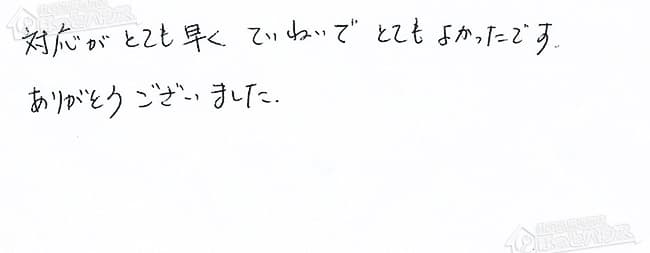 対応がとても早く ていねいで とても よかったです.
ありがとう ございました.